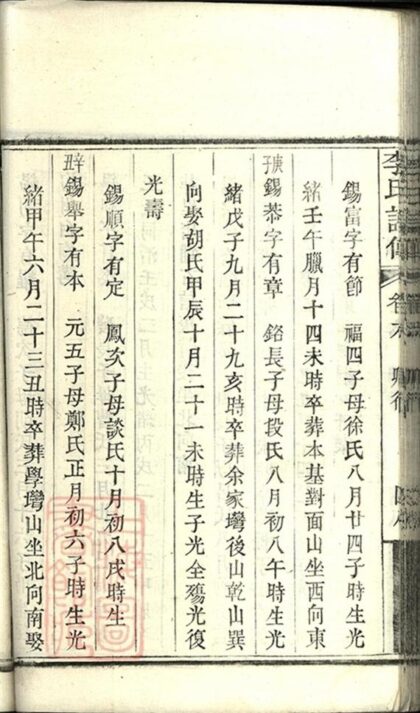 李氏譜傳 卷六
錫富字有節 福四子母徐氏八月廿四子時生光
緒壬午臘月十四未時卒葬本基對面山坐西向東
錫恭字有章 銘長子母段氏八月初八午時生光
緒戊子九月二十九亥時卒葬余家塆後山乾山巽
向娶胡氏甲辰十月二十一未時生子光全殤光復
光壽
錫順字有定 鳳次子母談氏十月初八戌時生
辛丑錫舉字有本 元五子母鄭氏正月初六子時生光
緒甲午六月二十三丑時卒葬學塆山坐北向南娶